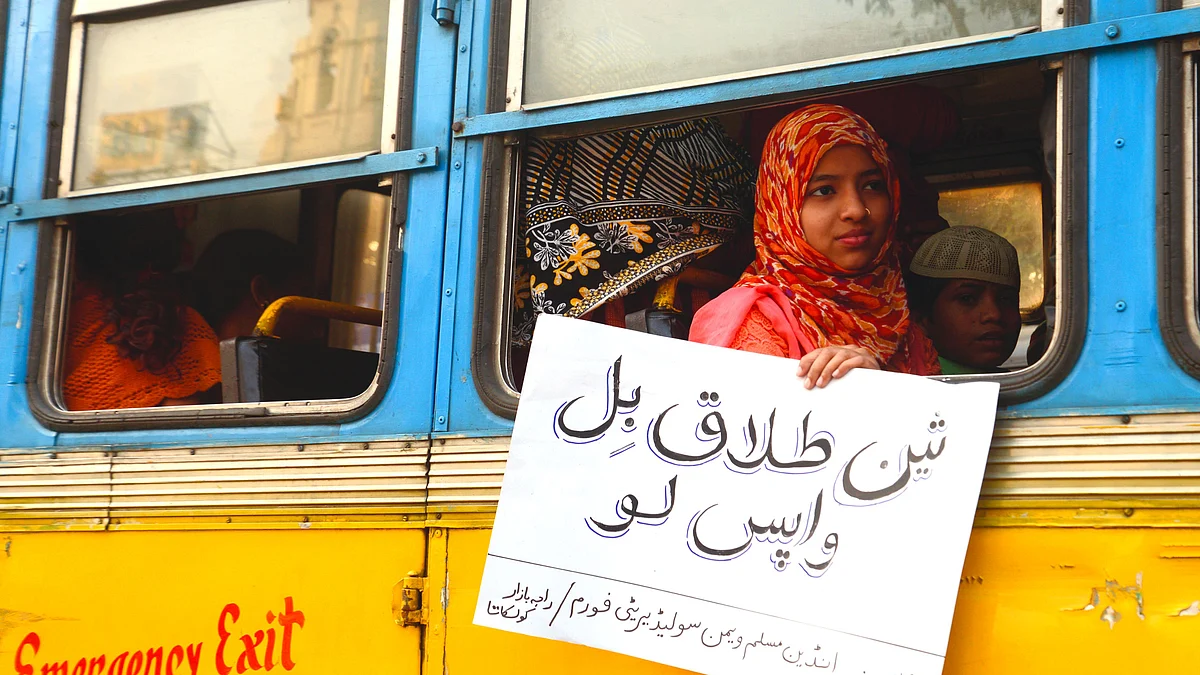 تین طلاق بِل
واپس لو
انڈین مسلم ویمن سولیڈیریٹی فورم / راجہ بازار
کولکاتا
Emergency Exit